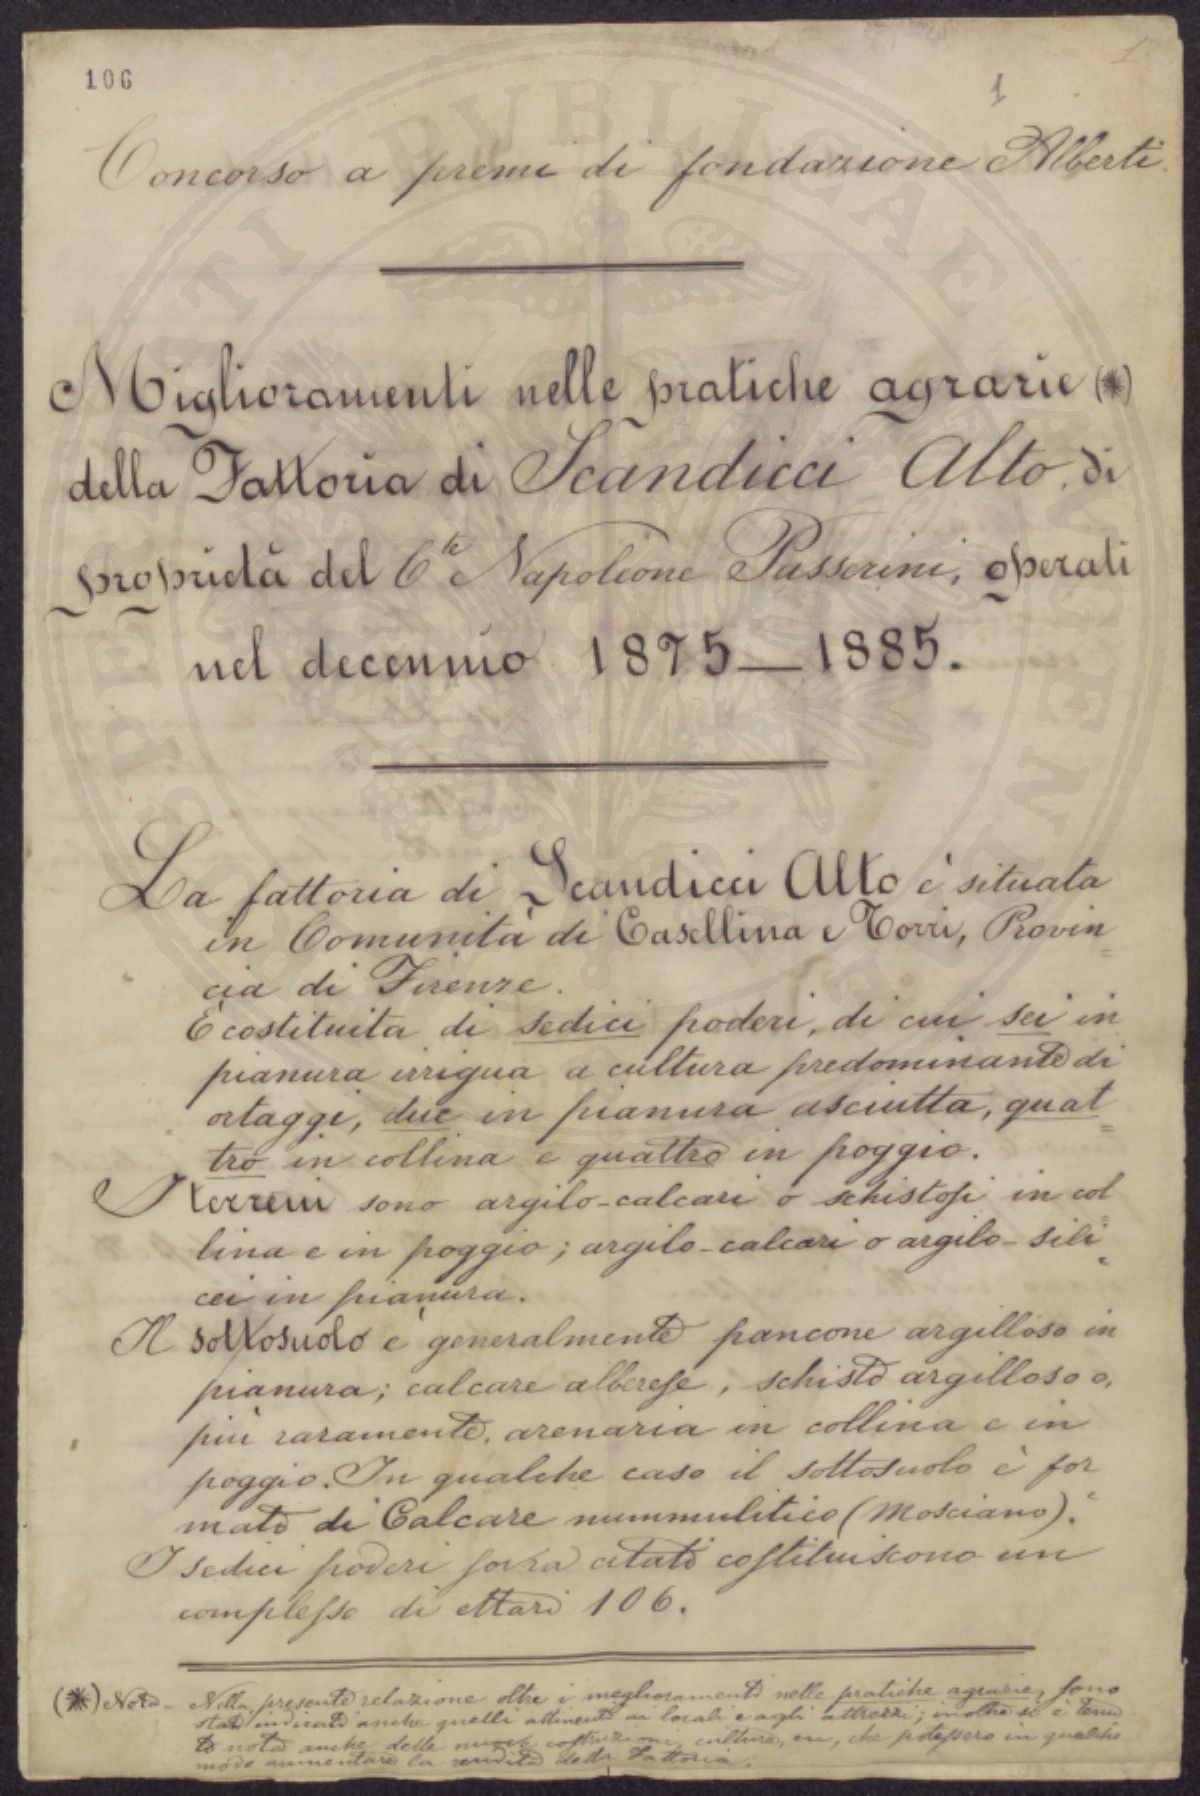 106
1
1
Concorso a premi di fondazione Alberti.
Miglioramenti nelle pratiche agrarie (*)
della Fattoria di Scandicci Alto, di
proprietà del Cte Napoleone Passerini, operati
nel decennio 1875—1885.
La fattoria di Scandicci Alto è situata
in Comunità di Casellina e Torri, Provin=
cia di Firenze.
È costituita di sedici poderi, di cui sei in
pianura irrigua a cultura predominante di
ortaggi, due in pianura asciutta, quat=
tro in collina e quattro in poggio.
I terreni sono argilo-calcari o schistosi in col=
lina e in poggio; argilo-calcari o argilo-sili=
cei in pianura.
Il sottosuolo è generalmente pancone argilloso in
pianura; calcare alberese, schisto argilloso o,
più raramente, arenaria in collina e in
poggio. In qualche caso il sottosuolo è for=
mato di Calcare nummulitico (Mosciano).
I sedici poderi sovra citati costituiscono un
complesso di ettari 106.
(*) Nota - Nella presente relazione oltre i miglioramenti nelle pratiche agrarie, sono
stati indicati anche quelli attinenti ai locali e agli attrezzi; inoltre si è tenu=
to nota anche delle nuove costruzioni, culture, che potessero in qualche
modo aumentare la rendita della Fattoria.
PUBLICAE